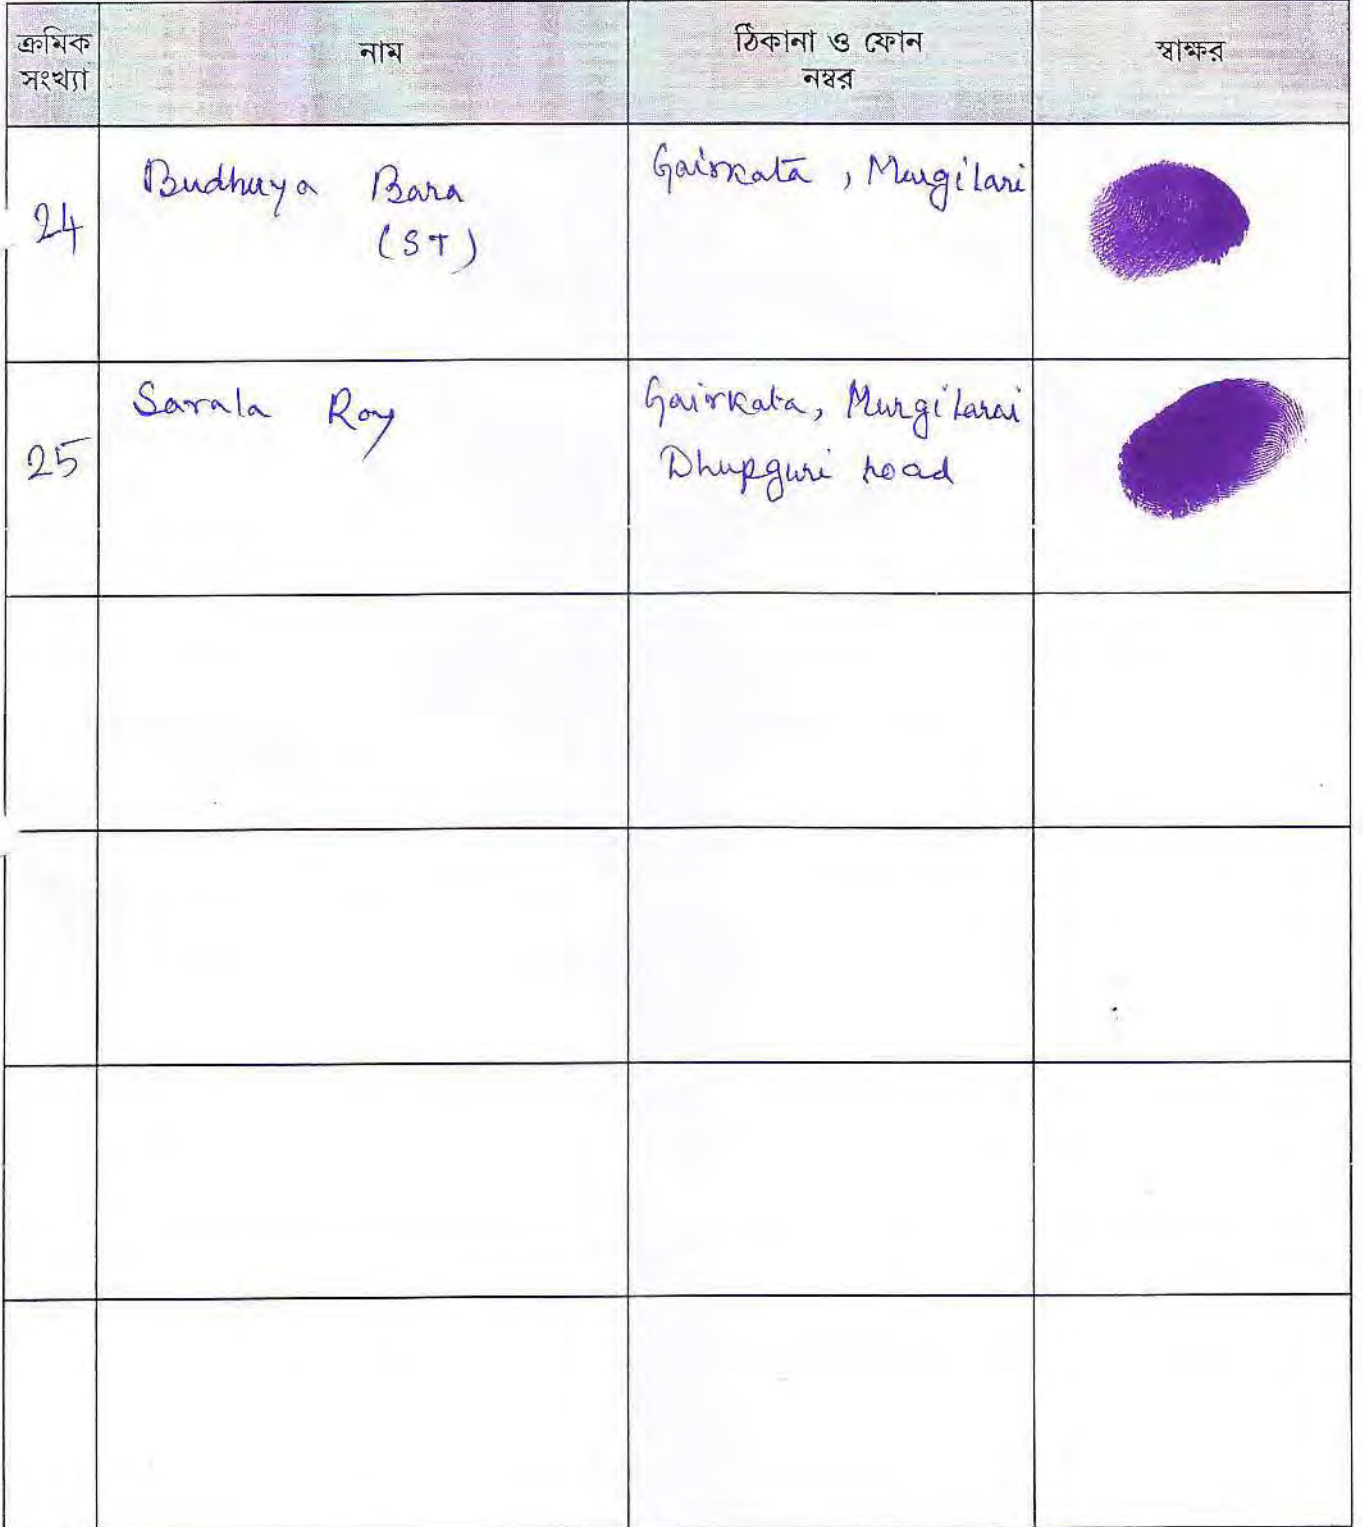 ক্রমিক সংখ্যা
নাম
ঠিকানা ও ফোন নম্বর
স্বাক্ষর
24
Budhuya Bara
(ST)
Gairkata, Murgilari
25
Sarala Roy
Gairkata, Murgilarai
Dhupguri road